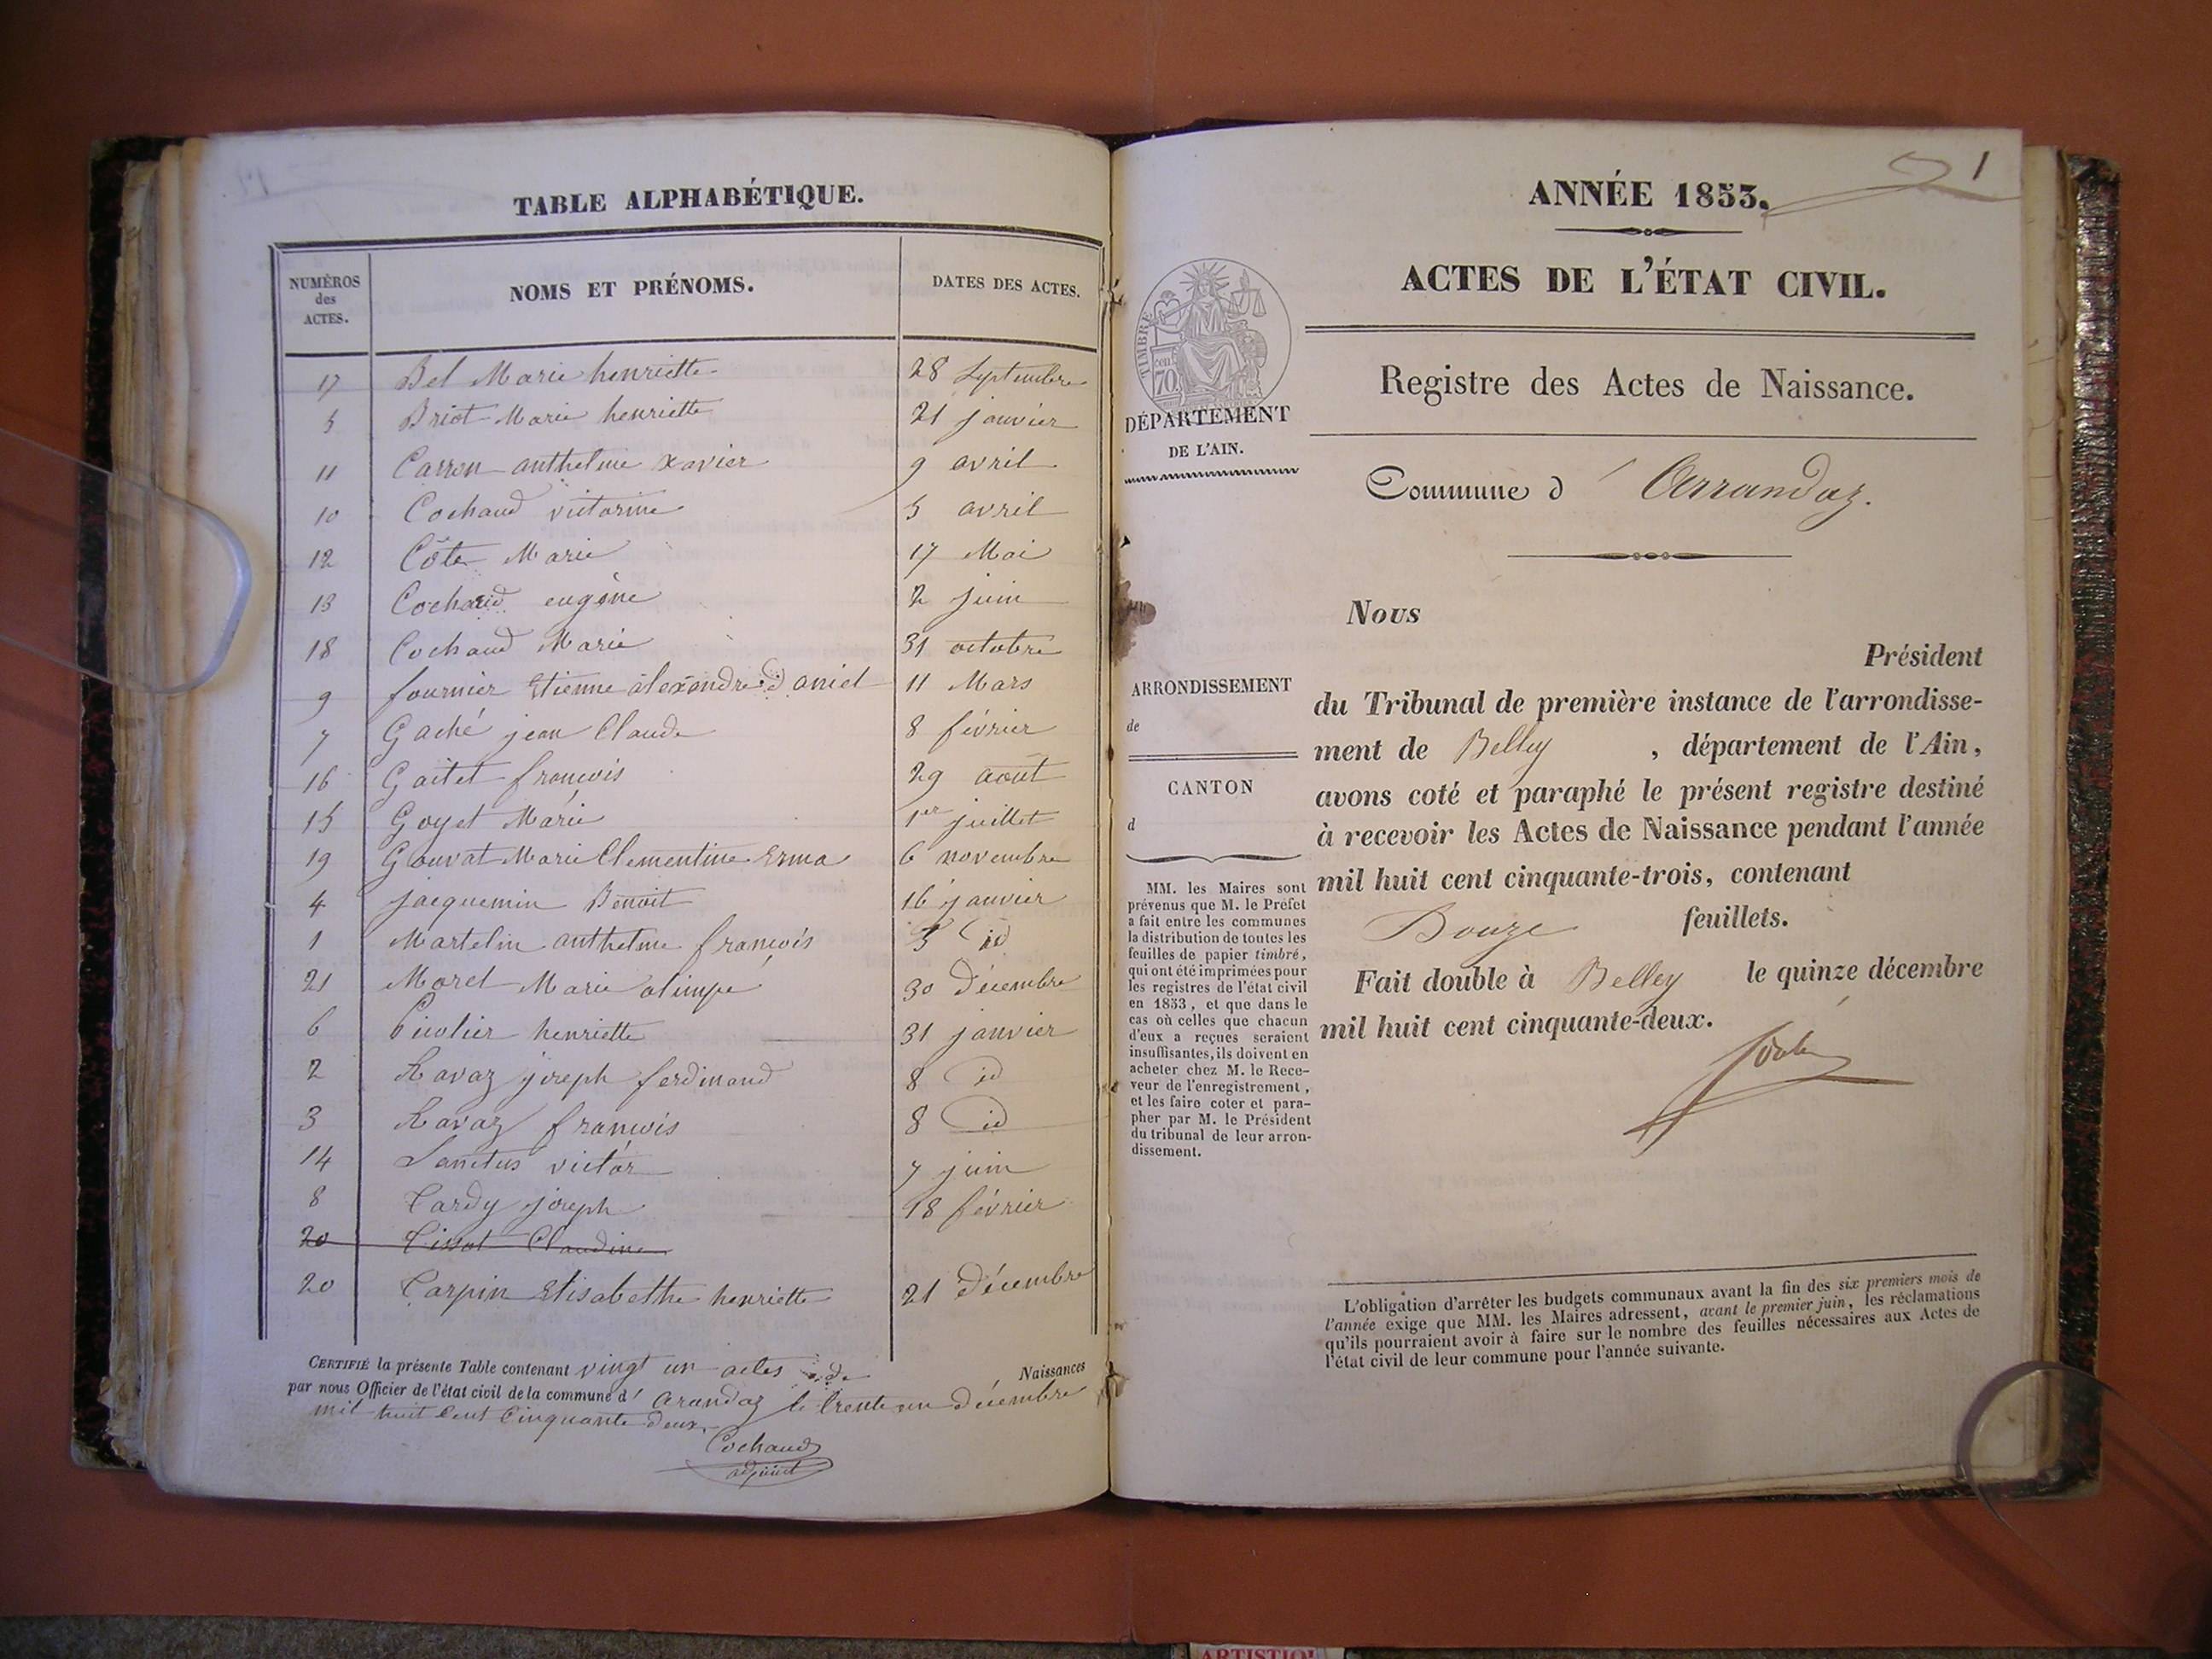 TABLE ALPHABÉTIQUE.
NUMÉROS des ACTES. NOMS ET PRÉNOMS. DATES DES ACTES.
17 Bel Marie henriette 28 Septembre
5 Briot Marie henriette 21 janvier
11 Carron anthelme Xavier 9 avril
10 Cochaud victorine 5 avril
12 Côte Marie 17 Mai
13 Cochaud eugène 2 juin
18 Cochaud Marie 31 octobre
9 fournier Etienne aléxandre daniel 11 Mars
7 Gaché jean Claude 8 février
16 Gaitet françois 29 août
15 Goyet Marie 1er juillet
19 Gouvat Marie Clementine Erma 6 novembre
4 jacquemin Benoit 16 janvier
1 Martelin anthelme françois 5 id
21 Morel Marie olimpe 30 Décembre
6 henriette 31 janvier
2 Ravaz joseph ferdinand 8 id
3 Ravaz françois 8 id
14 Sanctus victor 7 juin
8 Tardy joseph 18 février
20 Tissot Claudine
20 Carpin Elisabethe henriette 21 Décembre
CERTIFIÉ la présente Table contenant vingt un actes de Naissances
par nous Officier de l'état civil de la commune d' arandaz le trente un décembre
mil huit Cent Cinquante deux.
Cochaud
adjoint
1
ANNÉE 1853.
ACTES DE L'ÉTAT CIVIL.
Registre des Actes de Naissance.
TIMBRE
70
DÉPARTEMENT
DE L'AIN.
Commune d' Arrandaz.
ARRONDISSEMENT
de
CANTON
d
MM. les Maires sont
prévenus que M. le Préfet
a fait entre les communes
la distribution de toutes les
feuilles de papier timbré,
qui ont été imprimées pour
les registres de l'état civil
en 1853, et que dans le
cas où celles que chacun
d'eux a reçues seraient
insuffisantes, ils doivent en
acheter chez M. le Rece-
veur de l'enregistrement,
et les faire coter et para-
pher par M. le Président
du tribunal de leur arron-
dissement.
Nous
Président
du Tribunal de première instance de l'arrondisse-
ment de Belley, département de l'Ain,
avons coté et paraphé le présent registre destiné
à recevoir les Actes de Naissance pendant l'année
mil huit cent cinquante-trois, contenant
Douze feuillets.
Fait double à Belley le quinze décembre
mil huit cent cinquante-deux.
L'obligation d'arrêter les budgets communaux avant la fin des six premiers mois de
l'année exige que MM. les Maires adressent, avant le premier juin, les réclamations
qu'ils pourraient avoir à faire sur le nombre des feuilles nécessaires aux Actes de
l'état civil de leur commune pour l'année suivante.